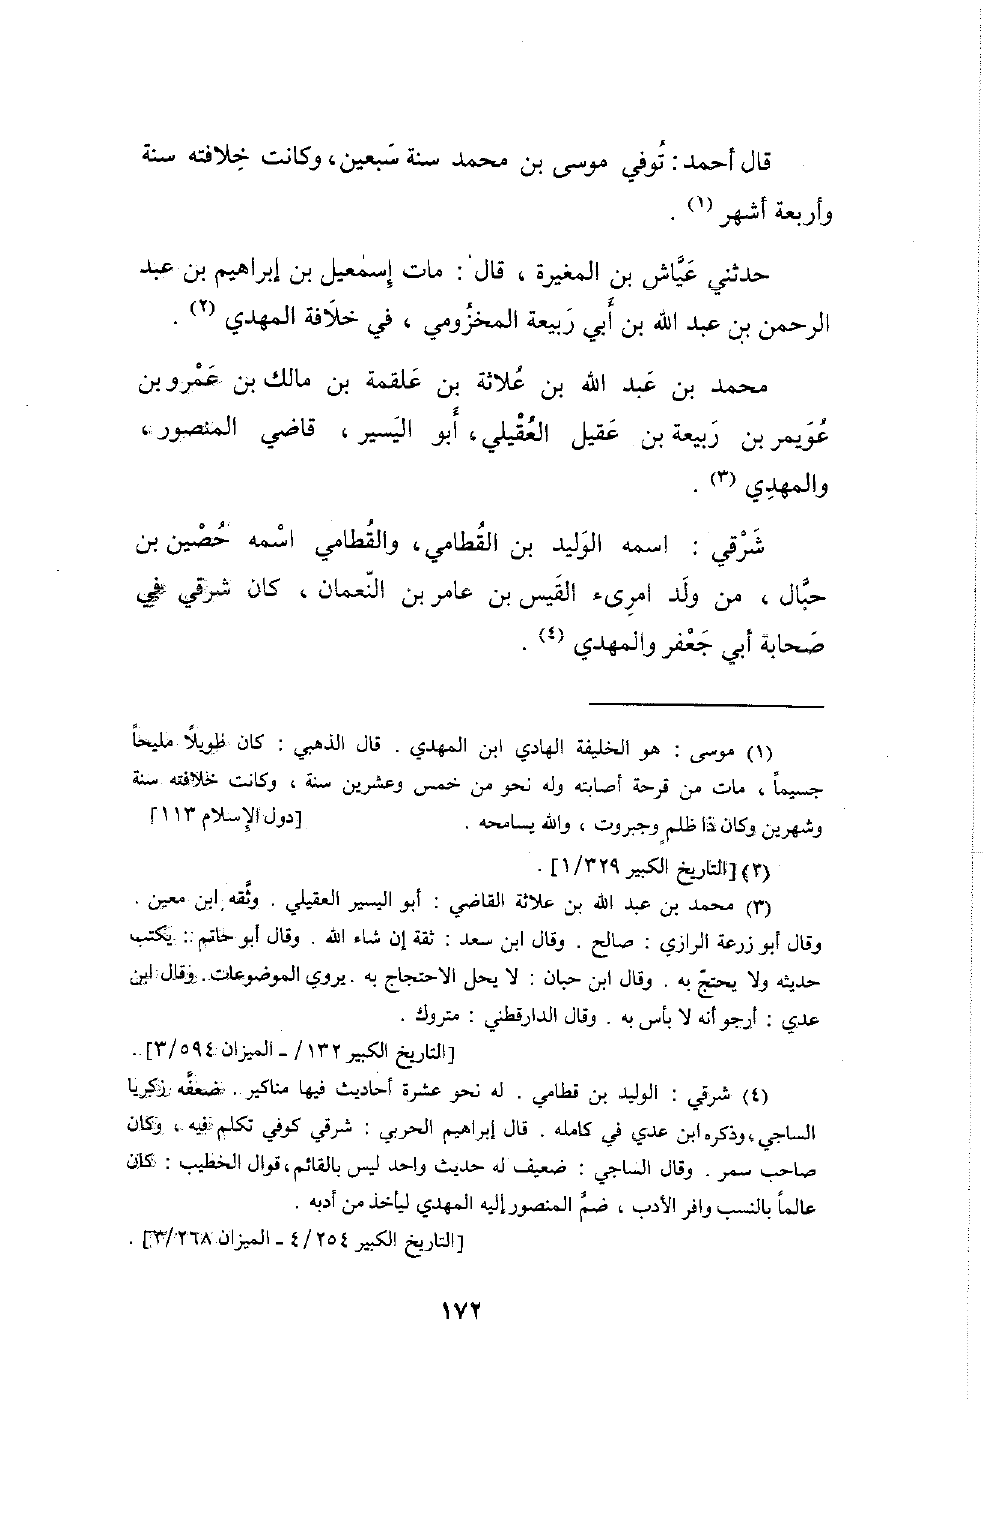 قال أحمد : تُوفي موسى بن محمد سنة سَبعين ، وكانت خِلافته سنة
وأربعة أشهر (١) .
حدثني عَيَّاش بن المغيرة ، قال : مات إِسمٰعيل بن إبراهيم بن عبد
الرحمن بن عبد الله بن أَبي رَبيعة المخزُومي ، في خلَافة المهدي (٢) .
محمد بن عَبد الله بن عُلاثة بن عَلقمة بن مالك بن عَمْرو بن
عُوَيمر بن رَبيعة بن عَقيل العُقْيلي ، أَبو اليَسير ، قاضي المنصور ،
والمهدِي (٣) .
شَرْقي : اسمه الوَليد بن القُطامي ، والقُطامي اسْمه حُصْين بن
حبَّال ، من ولَد امرِىء القَيس بن عامر بن النّعمان ، كان شرقي في
صَحابة أبي جَعْفر والمهدي (٤) .
(١) موسى : هو الخليفة الهادي ابن المهدي . قال الذهبي : كان طويلًا مليحاً
جسيماً ، مات من قرحة أصابته وله نحو من خمس وعشرين سنة ، وكانت خلافته سنة
وشهرين وكان ذا ظلمٍ وجبروت ، والله يسامحه . [دول الإسلام ١١٣]
(٢) [التاريخ الكبير ١/٣٢٩] .
(٣) محمد بن عبد الله بن علاثة القاضي : أبو اليسير العقيلي . وثَّقه ابن معين .
وقال أبو زرعة الرازي : صالح . وقال ابن سعد : ثقة إن شاء الله . وقال أبو حاتم : يكتب
حديثه ولا يحتجّ به . وقال ابن حبان : لا يحل الاحتجاج به . يروي الموضوعات . وقال ابن
عدي : أرجو أنه لا بأس به . وقال الدارقطني : متروك .
[التاريخ الكبير ١٣٢/ - الميزان ٣/٥٩٤] .
(٤) شرقي : الوليد بن قطامي . له نحو عشرة أحاديث فيها مناكير . ضعفَّه زكريا
الساجي ، وذكره ابن عدي في كامله . قال إبراهيم الحربي : شرقي كوفي تكلم فيه ، وكان
صاحب سمر . وقال الساجي : ضعيف له حديث واحد ليس بالقائم ، قوال الخطيب : كان
عالماً بالنسب وافر الأدب ، ضمَّ المنصور إليه المهدي ليأخذ من أدبه .
[التاريخ الكبير ٤/٢٥٤ - الميزان ٣/٢٦٨] .
١٧٢